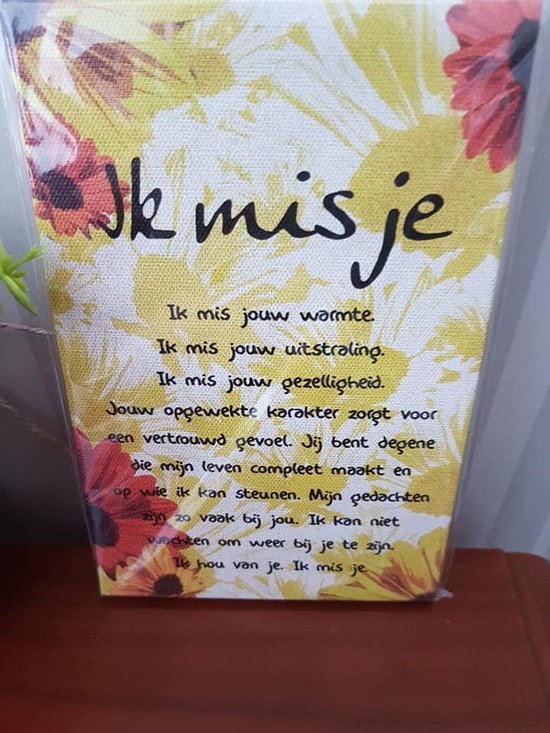 Ik mis je
Ik mis jouw warmte.
Ik mis jouw uitstraling.
Ik mis jouw gezelligheid.
Jouw opgewekte karakter zorgt voor
een vertrouwd gevoel. Jij bent degene
die mijn leven compleet maakt en
op wie ik kan steunen. Mijn gedachten
zijn zo vaak bij jou. Ik kan niet
wachten om weer bij je te zijn.
Ik hou van je. Ik mis je.